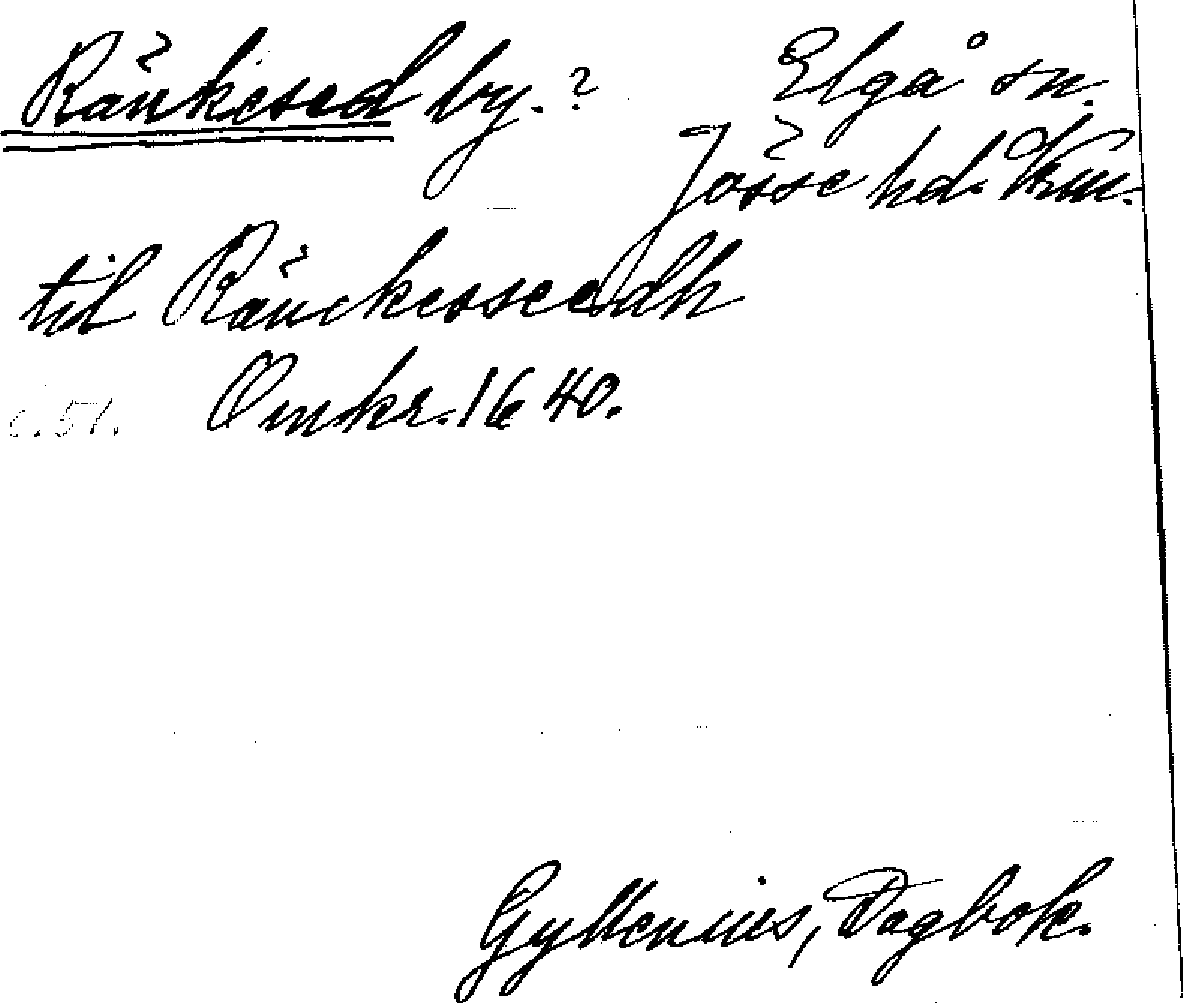 Ränkesed by.? Elgå sn.
Jösse hd. Vrm.
til Ränckesseedh
c.51. Omkr. 1640.
Gyllenius, Dagbok.